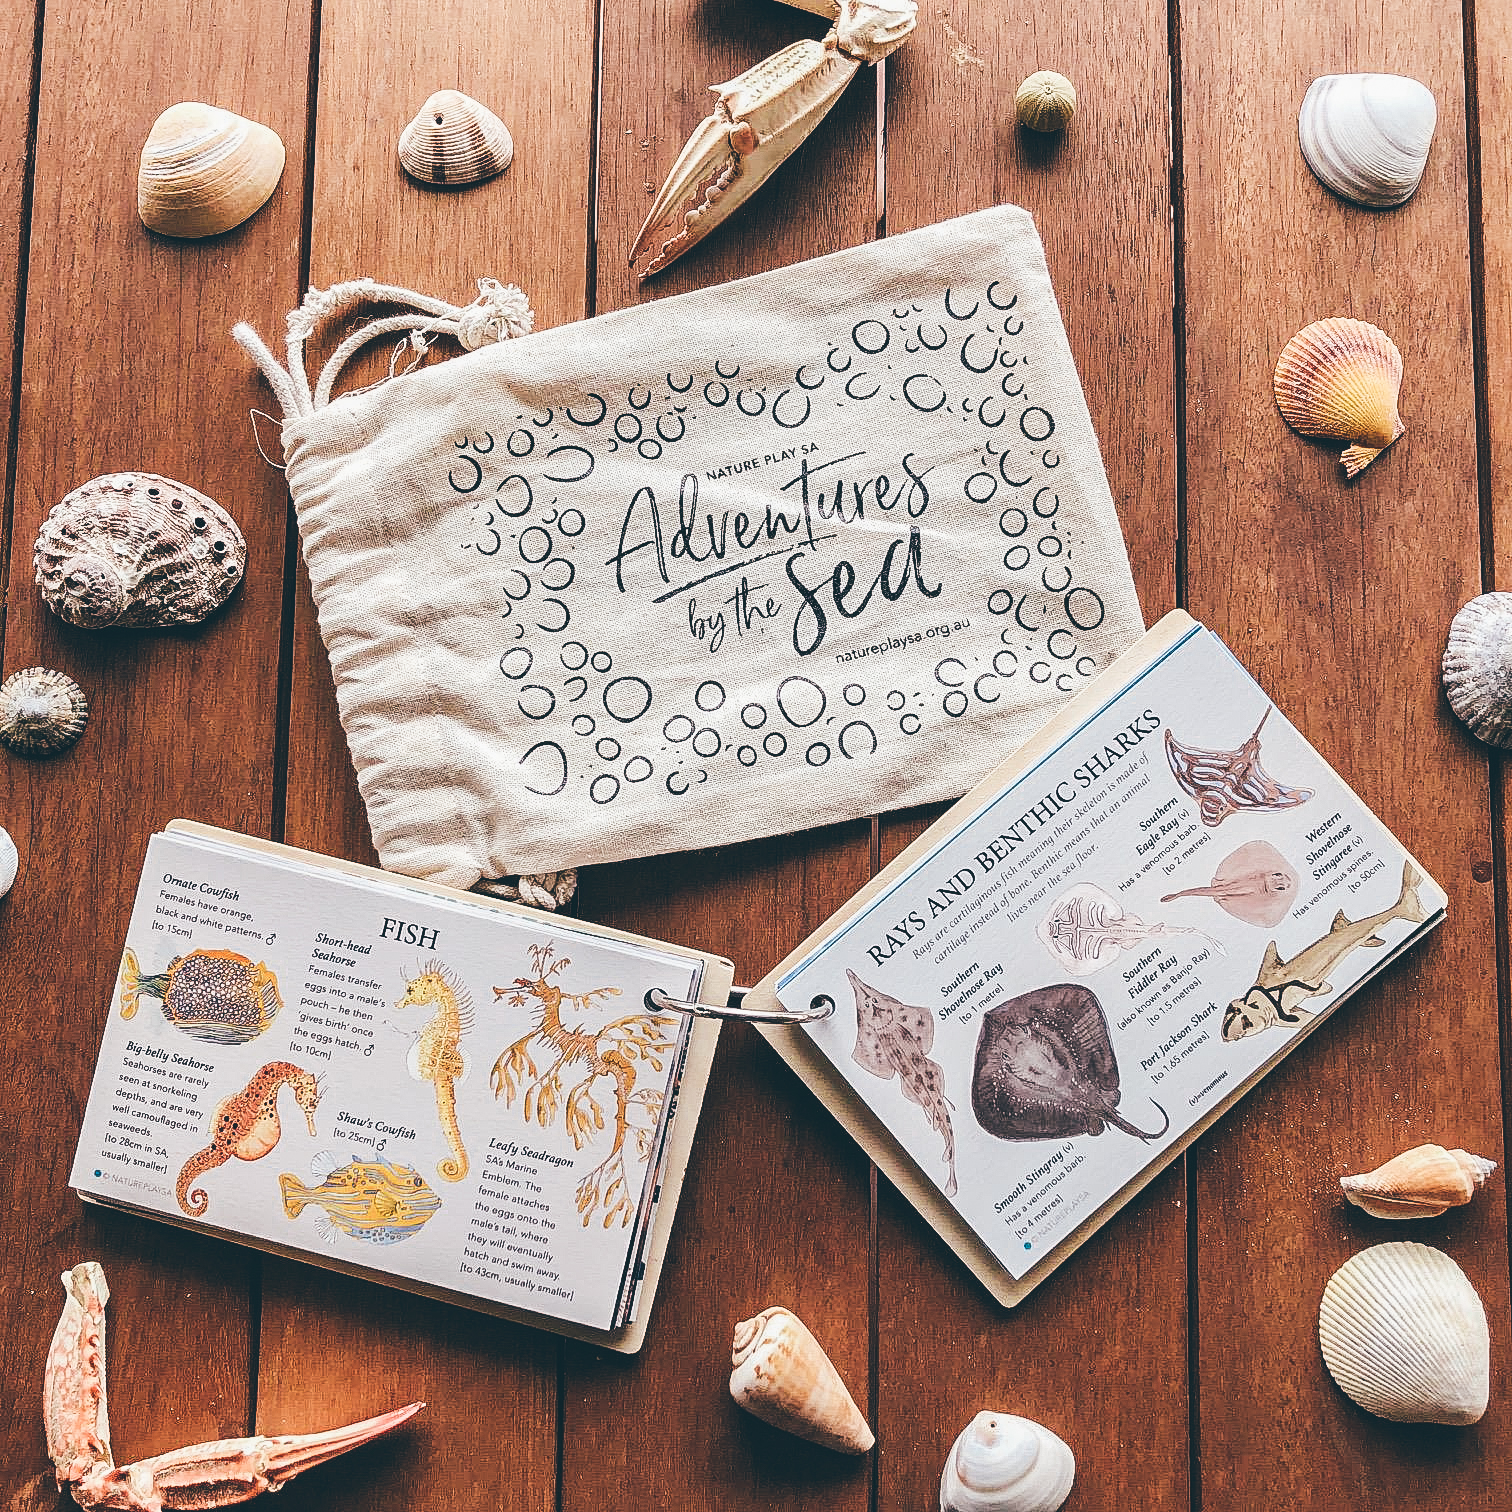 NATURE PLAY SA
Adventures
by the sea
natureplaysa.org.au
FISH
Ornate Cowfish
Females have orange,
black and white patterns. ♂
[to 15cm]
Short-head
Seahorse
Females transfer
eggs into a male's
pouch – he then
'gives birth' once
the eggs hatch. ♂
[to 10cm]
Big-belly Seahorse
Seahorses are rarely
seen at snorkeling
depths, and are very
well camouflaged in
seaweeds.
[to 28cm in SA,
usually smaller]
Shaw's Cowfish
[to 25cm] ♂
Leafy Seadragon
SA's Marine
Emblem. The
female attaches
the eggs onto the
male's tail, where
they will eventually
hatch and swim away.
[to 43cm, usually smaller]
© NATUREPLAYSA
RAYS AND BENTHIC SHARKS
Rays are cartilaginous fish meaning their skeleton is made of
cartilage instead of bone. Benthic means that an animal
lives near the sea floor.
Southern
Eagle Ray (v)
Has a venomous barb.
[to 2 metres]
Western
Shovelnose
Stingaree (v)
Has venomous spines.
[to 50cm]
Southern
Shovelnose Ray
[to 1 metre]
Southern
Fiddler Ray
(also known as Banjo Ray)
[to 1.5 metres]
Port Jackson Shark
[to 1.65 metres]
(v)=venomous
Smooth Stingray (v)
Has a venomous barb.
[to 4 metres]
© NATUREPLAYSA